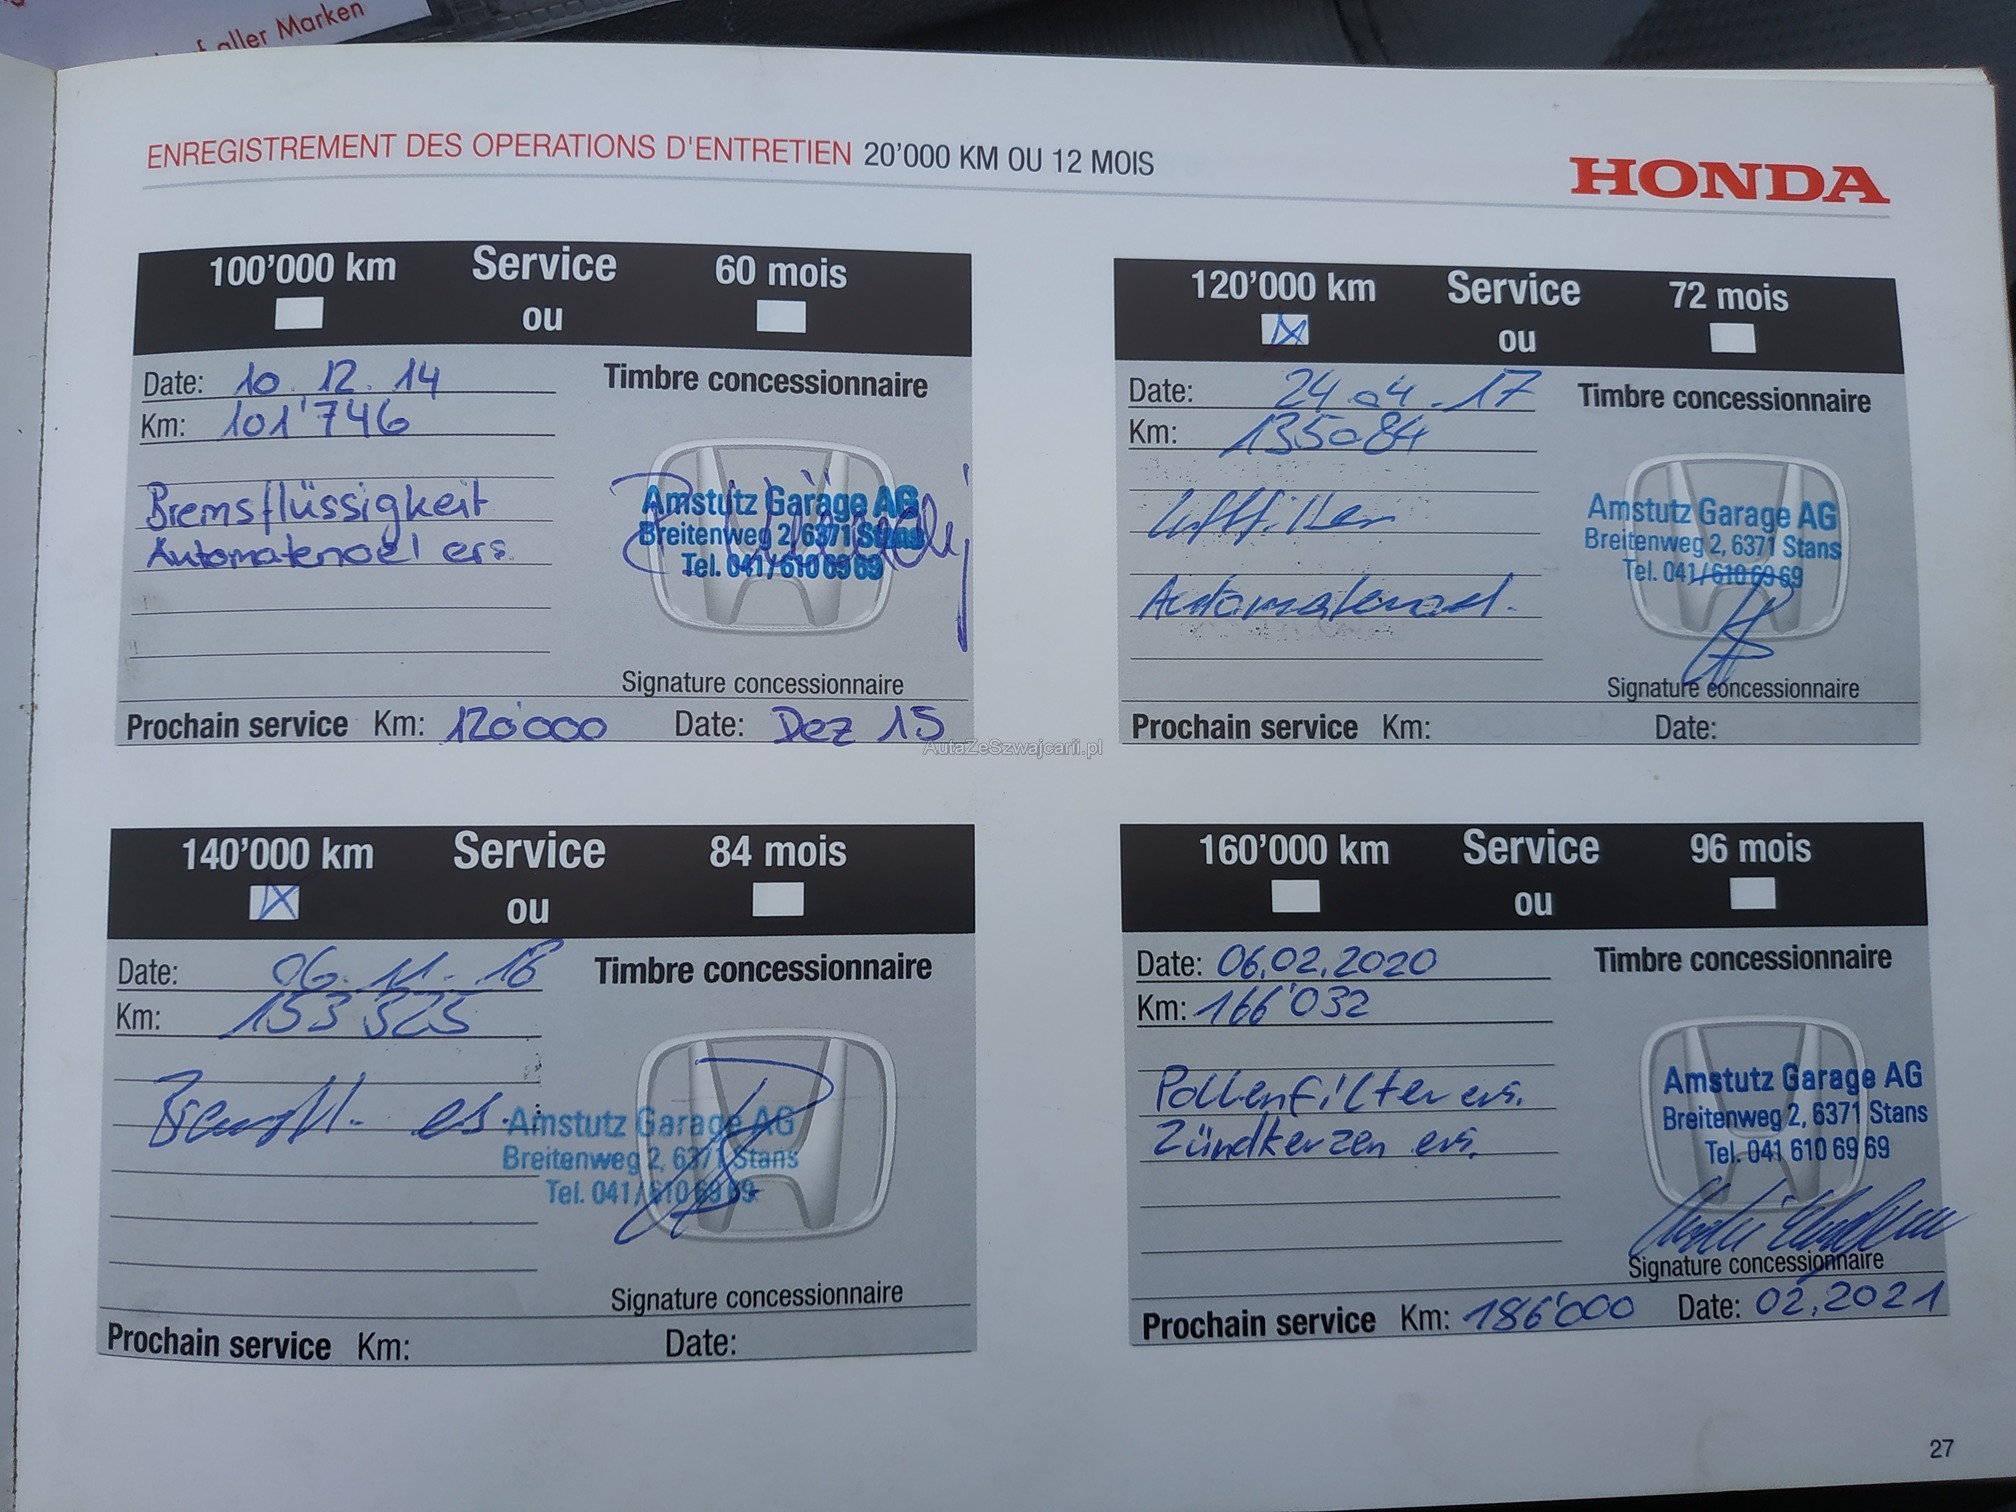 aller Marken
ENREGISTREMENT DES OPERATIONS D'ENTRETIEN 20'000 KM OU 12 MOIS
HONDA
100'000 km Service 60 mois
ou
Date: 10.12.14
Timbre concessionnaire
Km: 101'746
Bremsflüssigkeit
Automatenoel ers.
Amstutz Garage AG
Breitenweg 2, 6371 Stans
Tel. 041/610 69 69
Signature concessionnaire
Prochain service Km: 120'000 Date: Dez 15
120'000 km Service 72 mois
ou
Date: 24.04.17
Timbre concessionnaire
Km: 135084
Luftfilter
Automatenoel.
Amstutz Garage AG
Breitenweg 2, 6371 Stans
Tel. 041/610 69 69
Signature concessionnaire
Prochain service Km: Date:
AutaZeSzwajcarii.pl
140'000 km Service 84 mois
ou
Date: 06.11.18
Timbre concessionnaire
Km: 153325
Bremsfl. es.
Amstutz Garage AG
Breitenweg 2, 6371 Stans
Tel. 041/610 69 69
Signature concessionnaire
Prochain service Km: Date:
160'000 km Service 96 mois
ou
Date: 06.02.2020
Timbre concessionnaire
Km: 166'032
Pollenfilter ers.
Zündkerzen ers.
Amstutz Garage AG
Breitenweg 2, 6371 Stans
Tel. 041 610 69 69
Signature concessionnaire
Prochain service Km: 186'000 Date: 02.2021
27